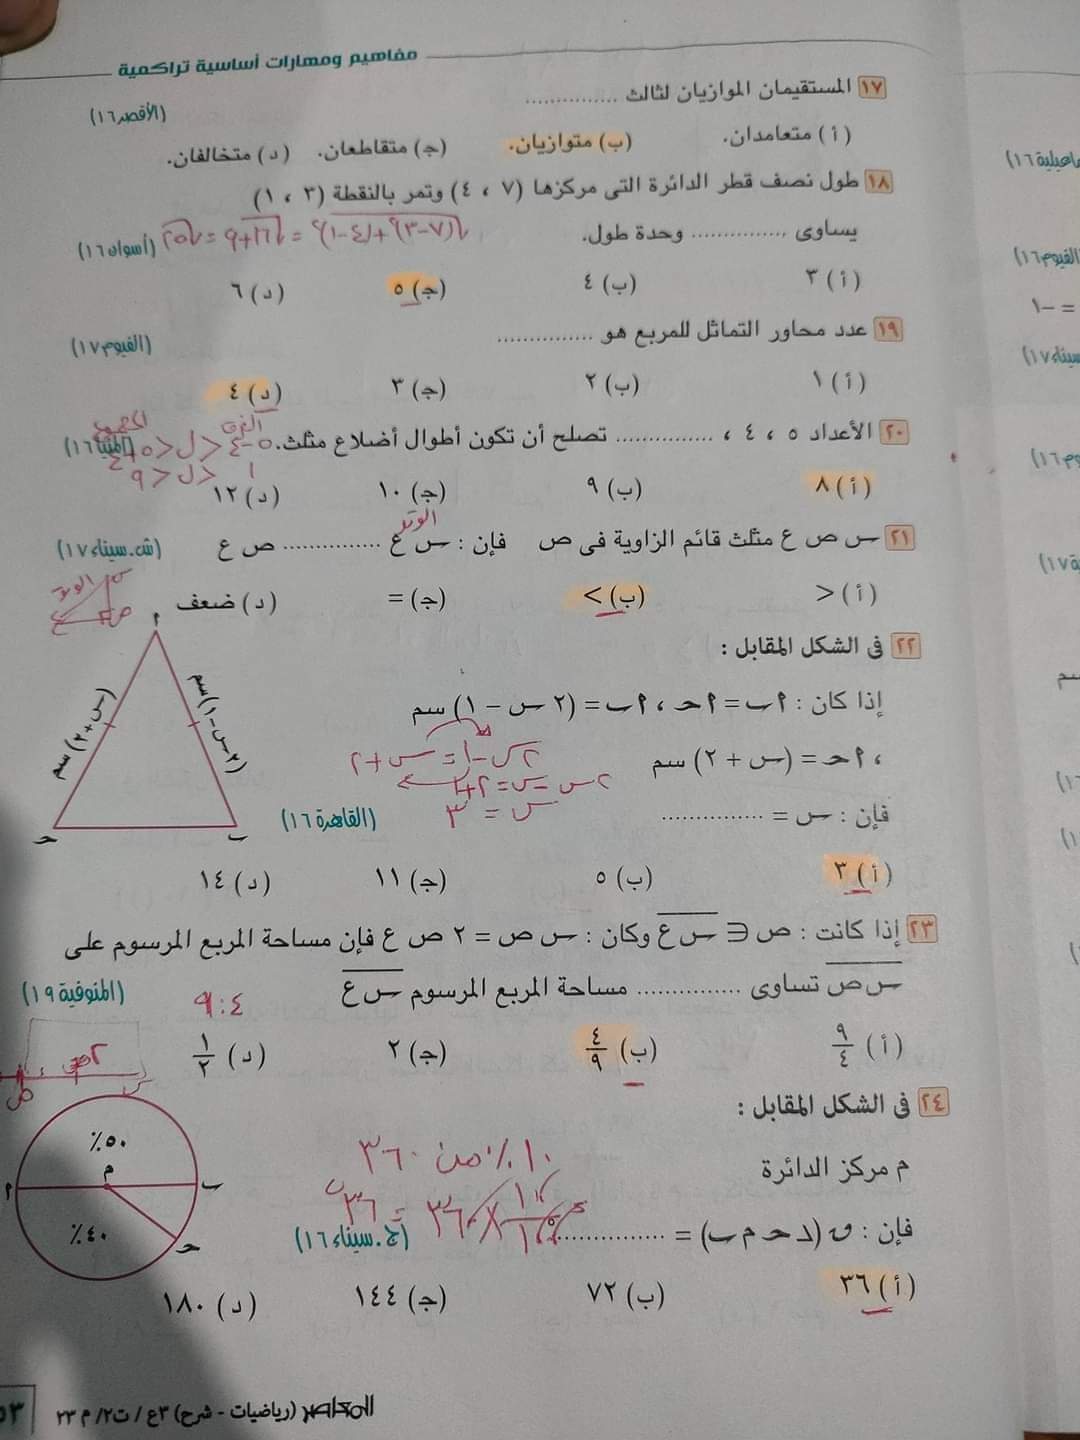 مفاهيم ومهارات أساسية تراكمية
١٧ المستقيمان الموازيان لثالث ...............
(الأقصر ١٦)
(أ) متعامدان. (ب) متوازيان. (ج) متقاطعان. (د) متخالفان.
١٨ طول نصف قطر الدائرة التى مركزها (٧ ، ٤) وتمر بالنقطة (٣ ، ١)
يساوى ............... وحدة طول.
(أسوان ١٦)
(أ) ٣ (ب) ٤ (ج) ٥ (د) ٦
١٩ عدد محاور التماثل للمربع هو ...............
(الفيوم ١٧)
(أ) ١ (ب) ٢ (ج) ٣ (د) ٤
٢٠ الأعداد ٥ ، ٤ ، ............... تصلح أن تكون أطوال أضلاع مثلث.
(المنيا ١٦)
(أ) ٨ (ب) ٩ (ج) ١٠ (د) ١٢
الوتر
٢١ س ص ع مثلث قائم الزاوية فى ص فإن : س ع ............... ص ع
(ش. سيناء ١٧)
(أ) < (ب) > (ج) = (د) ضعف
٢٢ فى الشكل المقابل :
إذا كان : ٢ ب = ٢ حـ ، ٢ ب = (٢ س – ١) سم
، ٢ حـ = (س + ٢) سم
٢ س – ١ = س + ٢
٢ س – س = ٢ + ١
س = ٣
فإن : س = ...............
(القاهرة ١٦)
(س + ٢) سم
(٢ س – ١) سم
(أ) ٣ (ب) ٥ (ج) ١١ (د) ١٤
٢٣ إذا كانت : ص ∈ س ع وكان : س ص = ٢ ص ع فإن مساحة المربع المرسوم على
س ص تساوى ............... مساحة المربع المرسوم س ع
(المنوفية ١٩)
٤ : ٩
(أ) ٩/٤ (ب) ٤/٩ (ج) ٢ (د) ١/٢
٢٤ فى الشكل المقابل :
م مركز الدائرة
١٠ ٪ من ٣٦٠
فإن : ن (د حـ م ب) = ...............°
(ج. سيناء ١٦)
٥٠٪
م
٤٠٪
(أ) ٣٦ (ب) ٧٢ (ج) ١٤٤ (د) ١٨٠
المعاصر (رياضيات - شرح) ٣ع / ت٢/ م ٢٣
٥٣